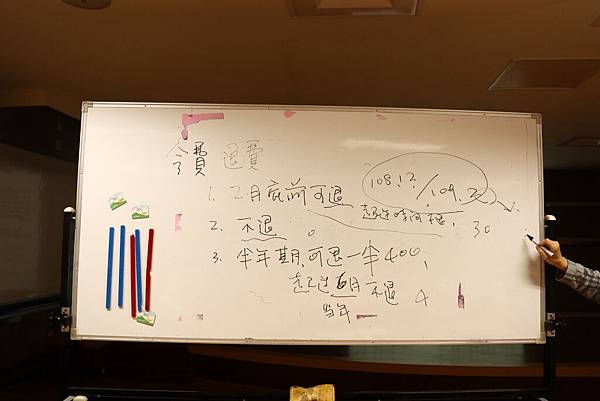 會費 退費
108.12/109.
1. 2月底前可退
超過時間不退,
2. 不退。
30
3. 半年期,可退一半400,
超過6月不退 4
當年